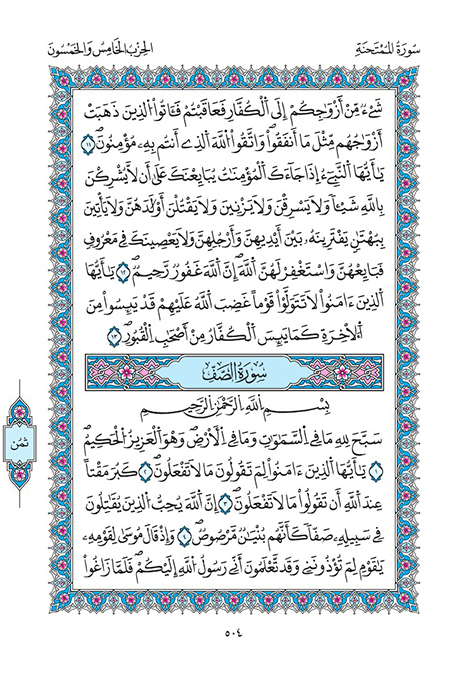 سُورَةُ المُمْتَحنَةِ الحِزْبُ الخَامِسُ وَالخَمْسُونَ
شَےْءٞ مِّنْ أَزْوَٰجِكُمُۥٓ إِلَى اَ۬لْكُفّ۪ارِ فَعَاقَبْتُمْ فَـَٔاتُواْ اُ۬لذِينَ ذَهَبَتَ
اَزْوَٰجُهُم مِّثْلَ مَآ أَنفَقُواْۖ وَاتَّقُواْ اُ۬للَّهَ اَ۬لذِےٓ أَنتُم بِهِۦ مُؤْمِنُونَۖ ١١
يَٰٓأَيُّهَا اَ۬لنَّبِےٓءُ اِ۪ذَا جَآءَكَ اَ۬لْمُؤْمِنَٰتُ يُبَايِعْنَكَ عَلَىٰٓ أَن لَّا يُشْرِكْنَ
بِاللَّهِ شَيْـٔاٗ وَلَا يَسْرِقْنَ وَلَا يَزْنِينَ وَلَا يَقْتُلْنَ أَوْلَٰدَهُنَّ وَلَا يَاتِينَ
بِبُهْتَٰنٖ يَفْتَرِينَهُۥ بَيْنَ أَيْدِيهِنَّ وَأَرْجُلِهِنَّ وَلَا يَعْصِينَكَ فِے مَعْرُوفٖ
فَبَايِعْهُنَّ وَاسْتَغْفِرْ لَهُنَّ اَ۬للَّهَۖ إِنَّ اَ۬للَّهَ غَفُورٞ رَّحِيمٞۖ ١٢ يَٰٓأَيُّهَا
اَ۬لذِينَ ءَامَنُواْ لَا تَتَوَلَّوْاْ قَوْماً غَضِبَ اَ۬للَّهُ عَلَيْهِمْ قَدْ يَئِسُواْ مِنَ
اَ۬لَاخِرَةِ كَمَا يَئِسَ اَ۬لْكُفَّارُ مِنَ اَصْحَٰبِ اِ۬لْقُبُورِۖ ١٣
سُورَةُ الصَّفِّ
بِسْمِ اِ۬للَّهِ اِ۬لرَّحْمَٰنِ اِ۬لرَّحِيمِ
سَبَّحَ لِلهِ مَا فِے اِ۬لسَّمَٰوَٰتِ وَمَا فِے اِ۬لَارْضِۖ وَهُوَ اَ۬لْعَزِيزُ اُ۬لْحَكِيمُۖ
١ يَٰٓأَيُّهَا اَ۬لذِينَ ءَامَنُواْ لِمَ تَقُولُونَ مَا لَا تَفْعَلُونَۖ ٢ كَبُرَ مَقْتاً
عِندَ اَ۬للَّهِ أَن تَقُولُواْ مَا لَا تَفْعَلُونَۖ ٣ إِنَّ اَ۬للَّهَ يُحِبُّ اُ۬لذِينَ يُقَٰتِلُونَ
فِے سَبِيلِهِۦ صَفّاٗ كَأَنَّهُم بُنْيَٰنٞ مَّرْصُوصٞۖ ٤ وَإِذْ قَالَ مُوسَىٰ لِقَوْمِهِۦ
يَٰقَوْمِ لِمَ تُوذُونَنِے وَقَد تَّعْلَمُونَ أَنِّے رَسُولُ اُ۬للَّهِ إِلَيْكُمْۖ فَلَمَّا زَاغُوٓاْ
ثُمُن
٥٠٤